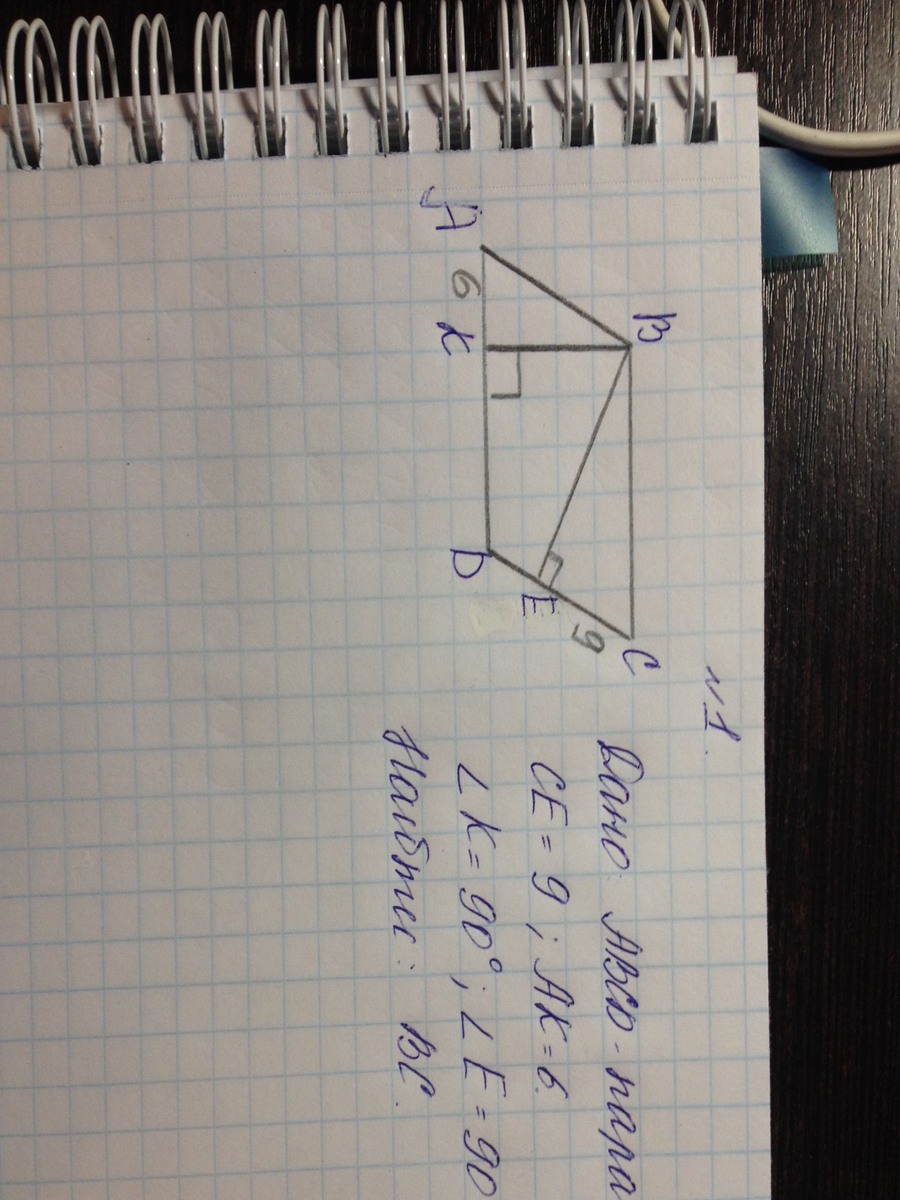 №1.
Дано: ABCD - пара
CE = 9; AK = 6.
∠K = 90°; ∠E = 90
Найти: BC.
B
C
9
E
A
6
K
D